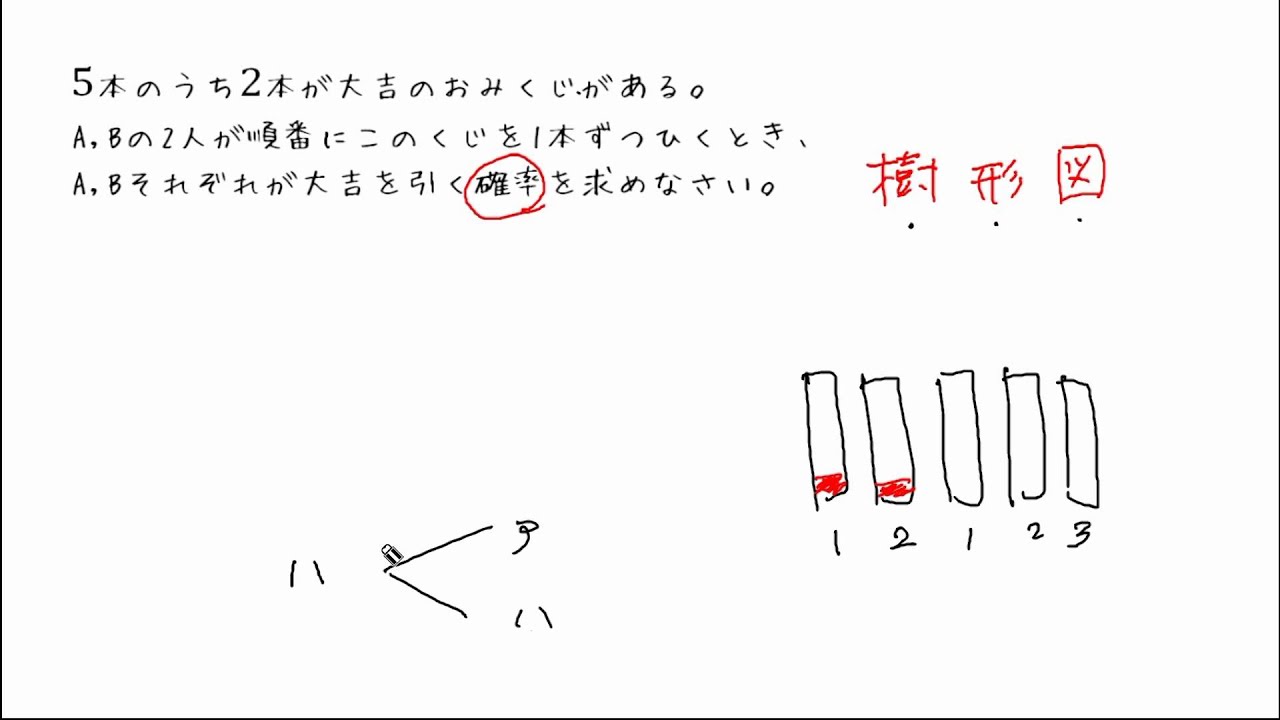 5本のうち2本が大吉のおみくじがある。
A,Bの2人が順番にこのくじを1本ずつひくとき、
A,Bそれぞれが大吉を引く確率を求めなさい。
樹形図
1 2 1 2 3
ア
ハ
ハ